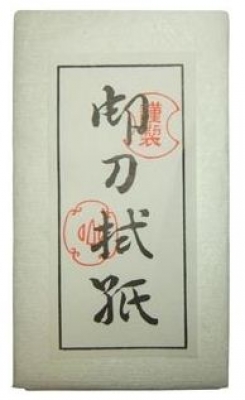 御刀拭紙
謹製